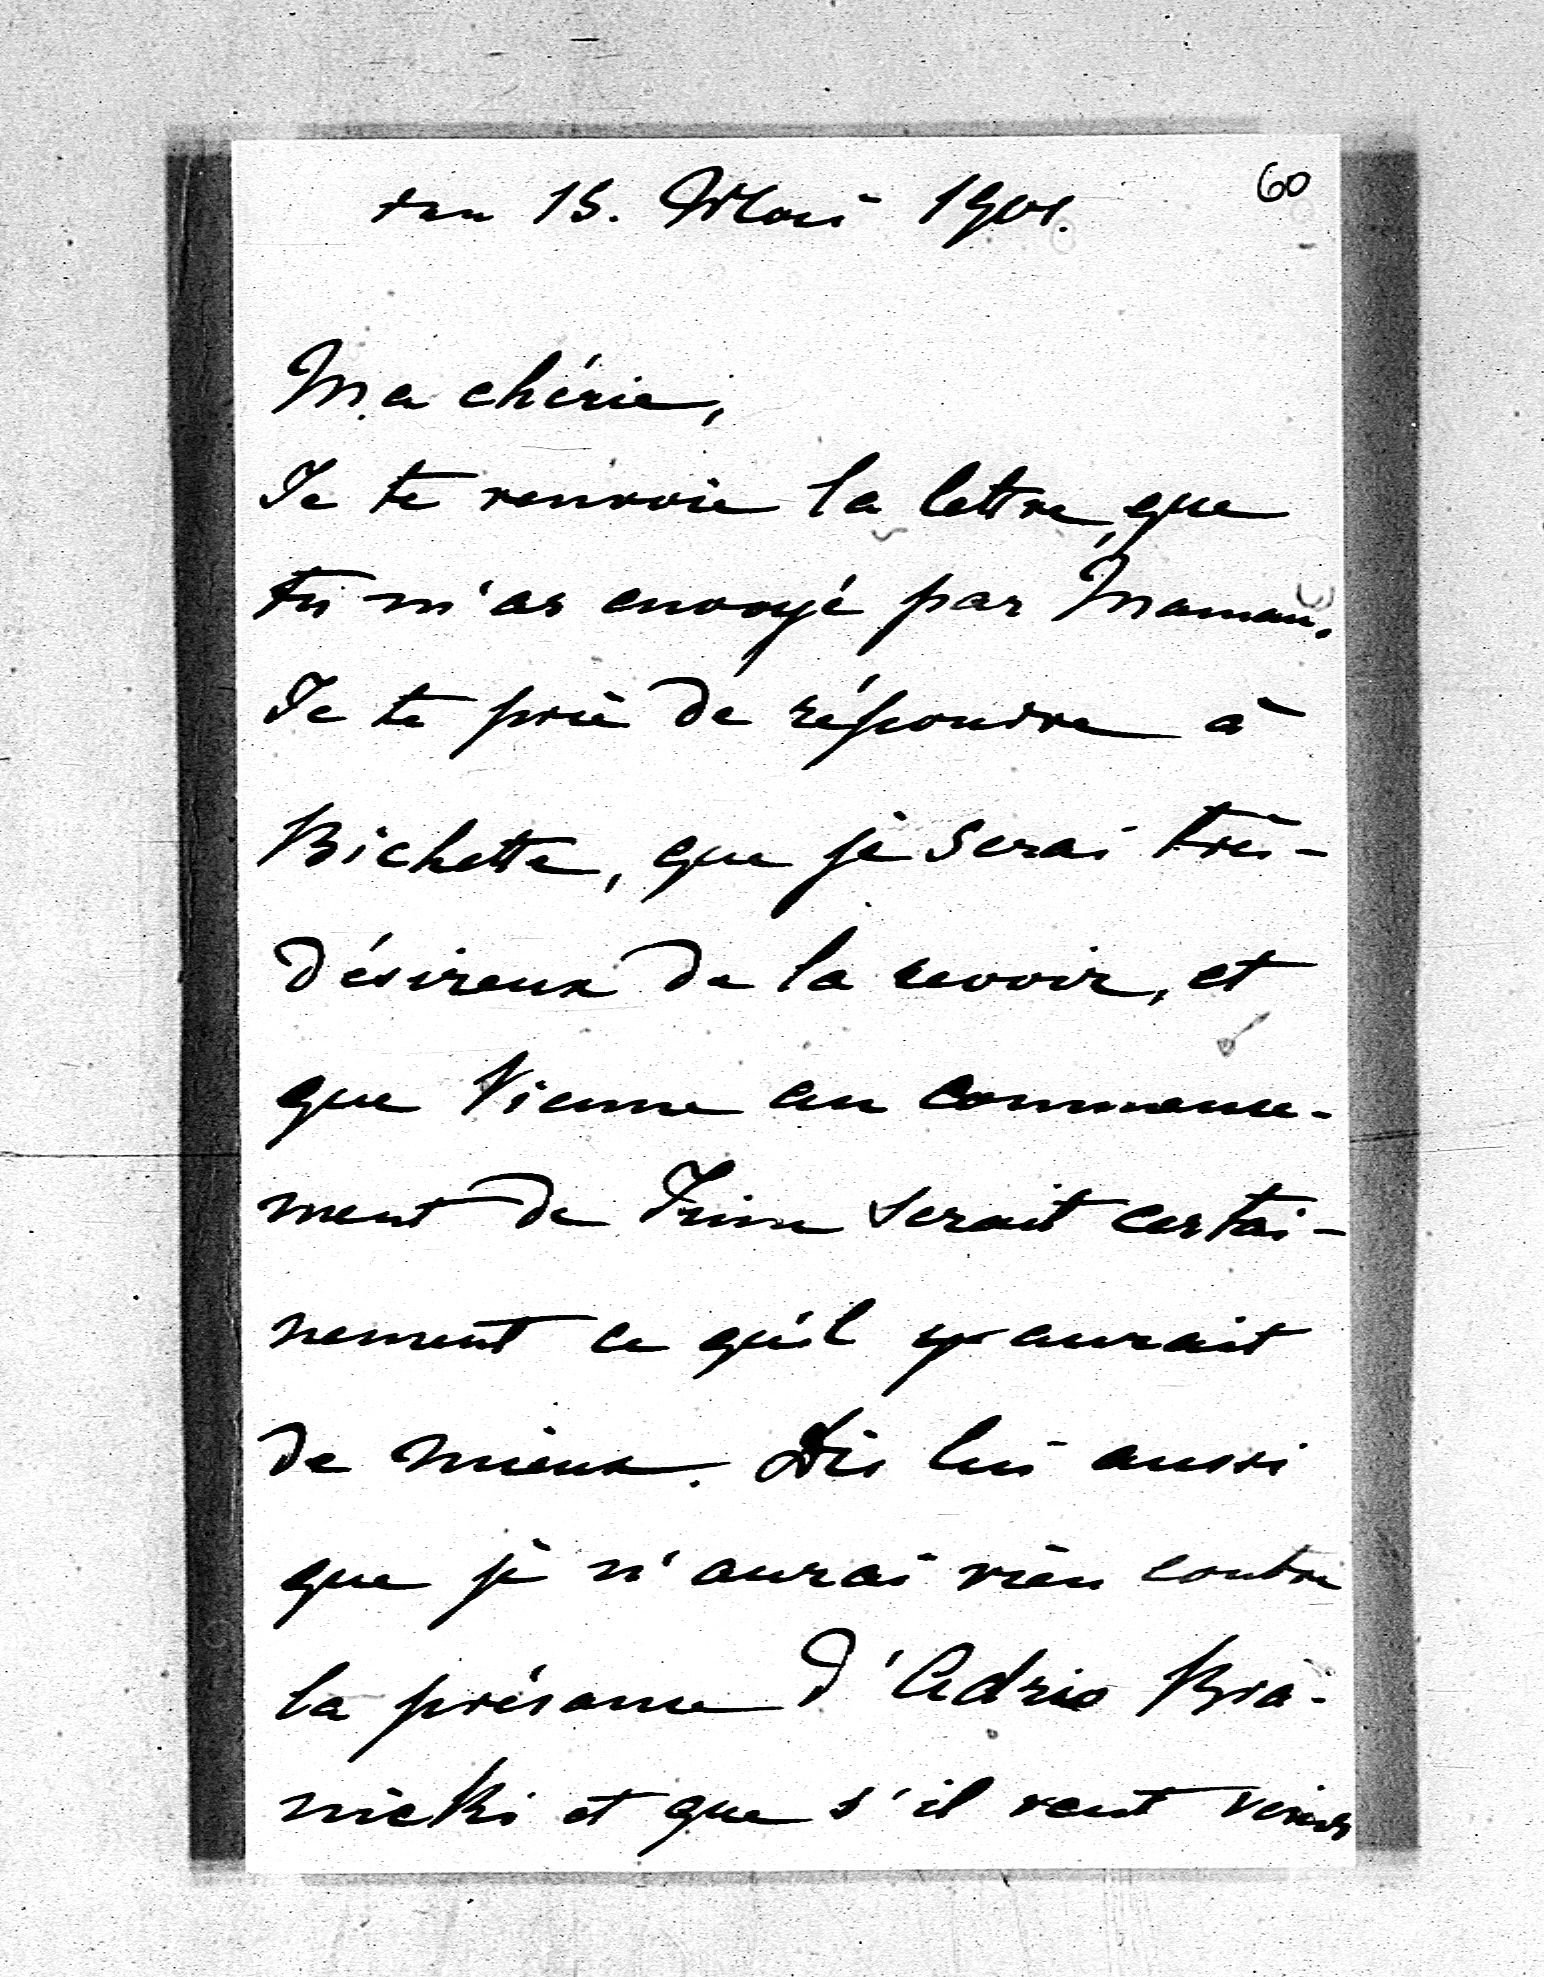 60
den 15. Mai 1901.
Ma chérie,
Je te renvoie la lettre, que
tu m'as envoyé par Maman.
Je te prie de répondre à
Bichette, que je serai très-
désireux de la revoir, et
que Vienne au commence-
ment de Juin serait certai-
nement ce qu'il y aurait
de mieux. Dis lui aussi
que je n'aurai rien contre
la présence d'Adrio Bra-
nicki et que s'il veut venir